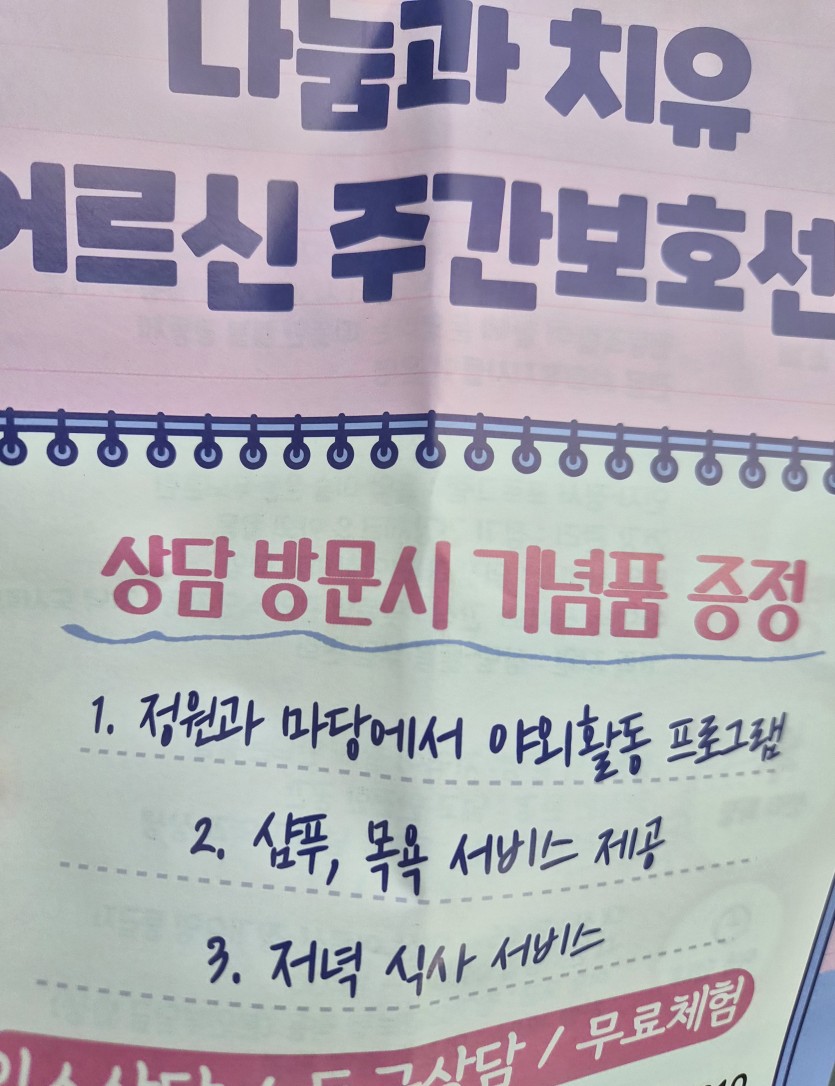 나눔과 치유
어르신 주간보호센
상담 방문시 기념품 증정
1. 정원과 마당에서 야외활동 프로그램
2. 샴푸, 목욕 서비스 제공
3. 저녁 식사 서비스
입소상담 / 등급상담 / 무료체험